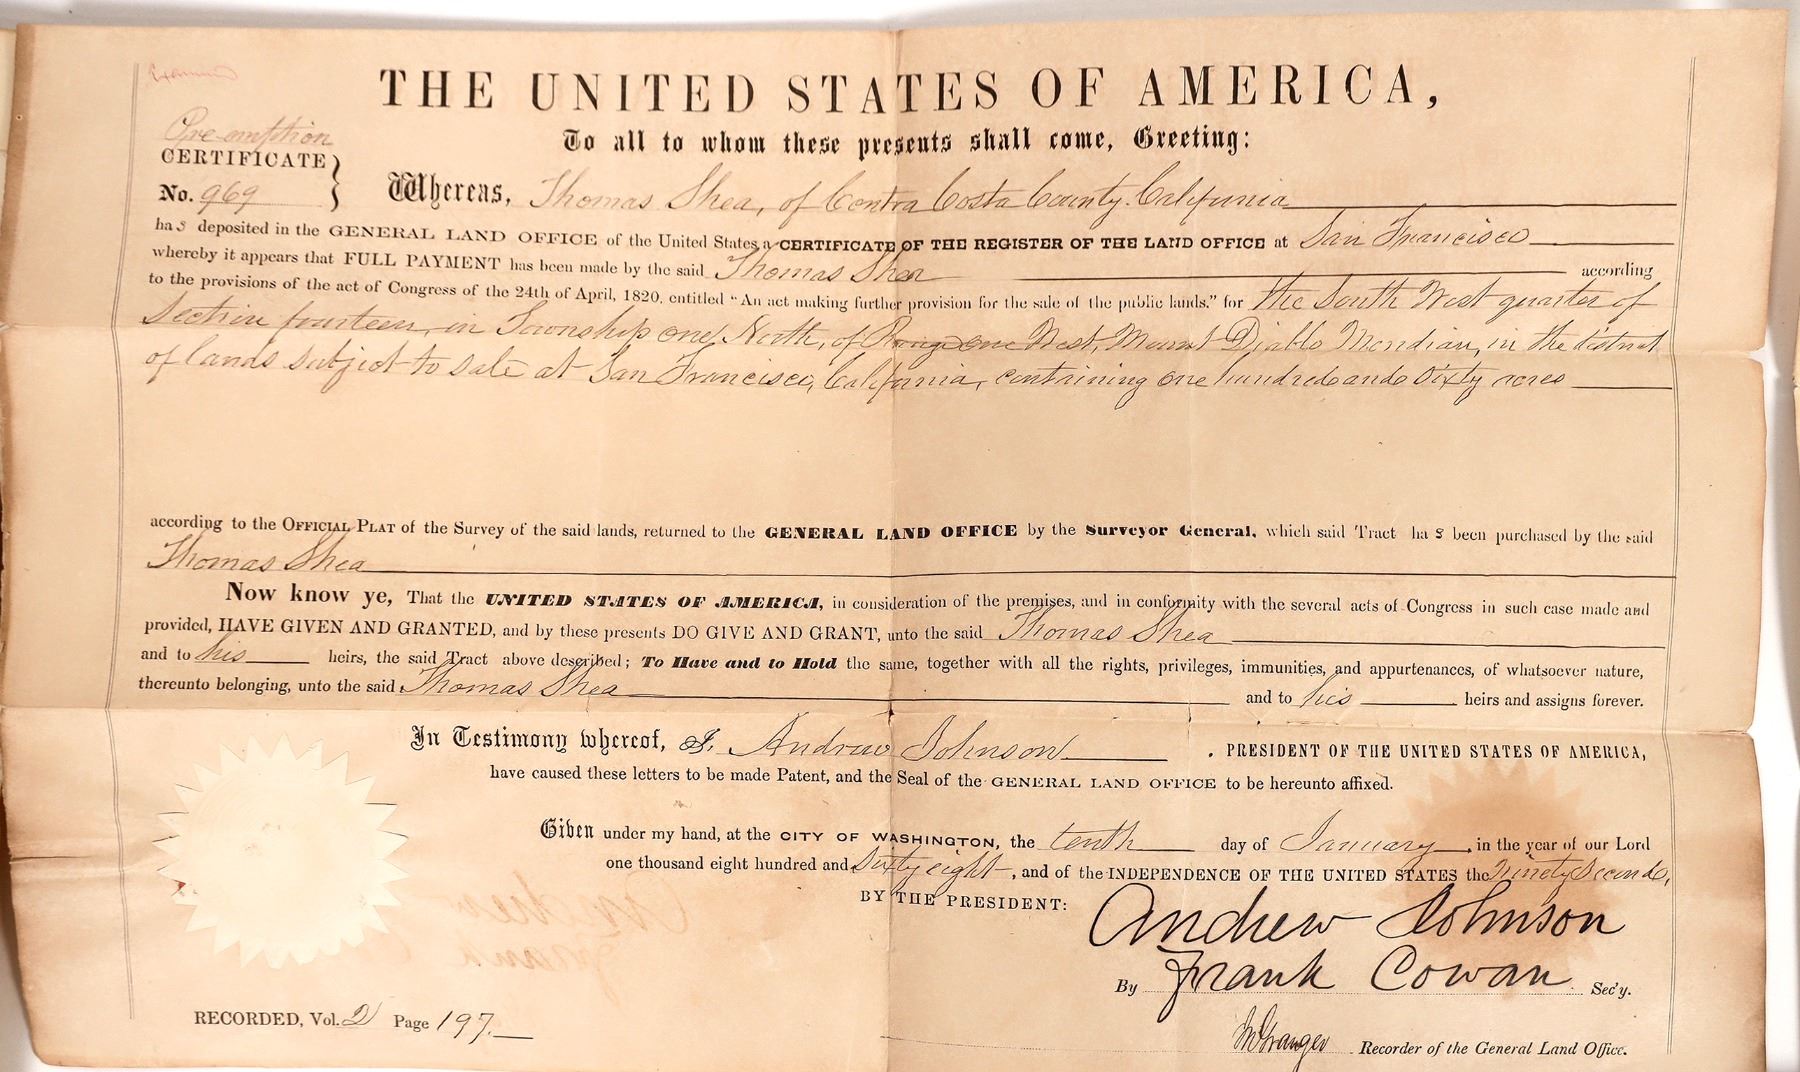 Examined
THE UNITED STATES OF AMERICA,
Pre-emption
CERTIFICATE
No. 969
To all to whom these presents shall come, Greeting:
Whereas, Thomas Shea, of Contra Costa County. California
has deposited in the GENERAL LAND OFFICE of the United States, a CERTIFICATE OF THE REGISTER OF THE LAND OFFICE at San Francisco
whereby it appears that FULL PAYMENT has been made by the said Thomas Shea according
to the provisions of the act of Congress of the 24th of April, 1820, entitled "An act making further provision for the sale of the public lands." for the South West quarter of
Section fourteen, in Township one North, of Range one West, Mount Diablo Meridian, in the district
of lands subject to sale at San Francisco, California, containing one hundred and sixty acres
according to the OFFICIAL PLAT of the Survey of the said lands, returned to the GENERAL LAND OFFICE by the Surveyor General, which said Tract has been purchased by the said
Thomas Shea
Now know ye, That the UNITED STATES OF AMERICA, in consideration of the premises, and in conformity with the several acts of Congress in such case made and
provided, HAVE GIVEN AND GRANTED, and by these presents DO GIVE AND GRANT, unto the said Thomas Shea
and to his heirs, the said Tract above described; To Have and to Hold the same, together with all the rights, privileges, immunities, and appurtenances, of whatsoever nature,
thereunto belonging, unto the said Thomas Shea and to his heirs and assigns forever.
In Testimony whereof, I, Andrew Johnson, PRESIDENT OF THE UNITED STATES OF AMERICA,
have caused these letters to be made Patent, and the Seal of the GENERAL LAND OFFICE to be hereunto affixed.
Given under my hand, at the CITY OF WASHINGTON, the tenth day of January, in the year of our Lord
one thousand eight hundred and sixty eight, and of the INDEPENDENCE OF THE UNITED STATES the Ninety Second,
BY THE PRESIDENT: Andrew Johnson
By Frank Cowan Sec'y.
RECORDED, Vol. 2 Page 197.
Granger Recorder of the General Land Office.